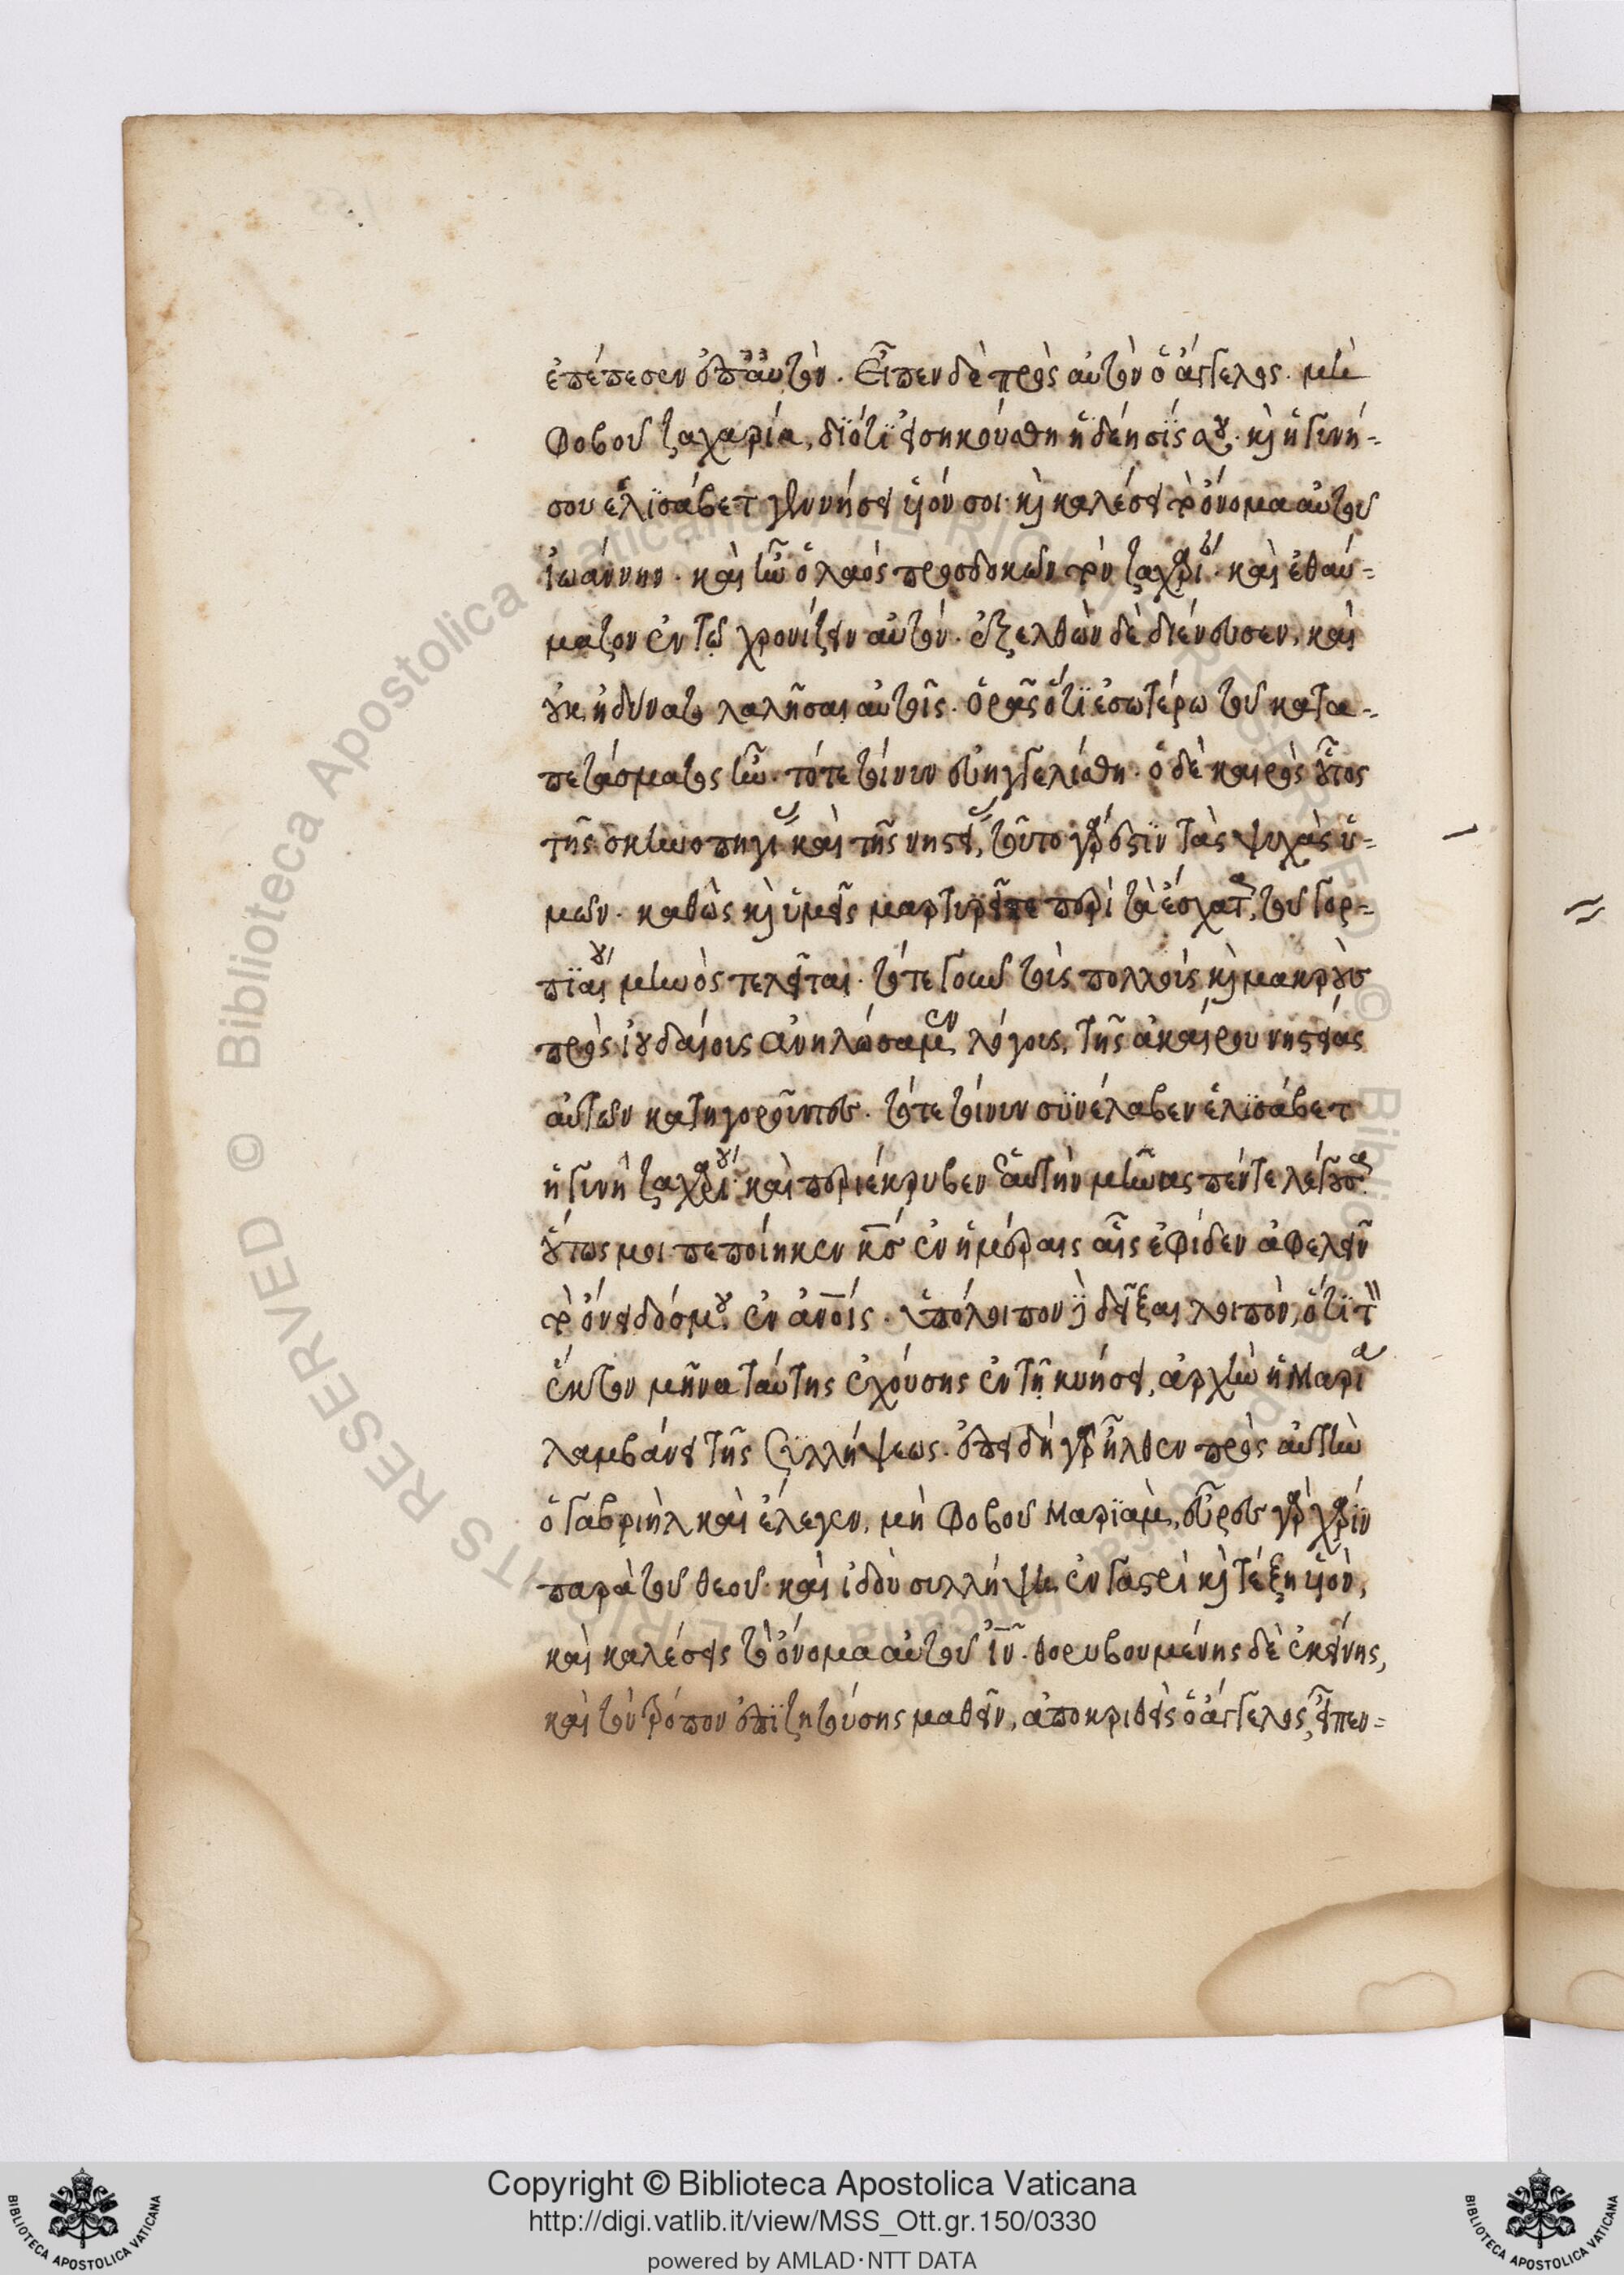 ἐπέπεσεν ἐπ' αὐτὸν. Εἶπεν δὲ πρὸς αὐτὸν ὁ ἄγγελος. μὴ
φοβοῦ ζαχαρία, διότι εἰσηκούσθη ἡ δέησίς σου. καὶ ἡ γυνή
σου ἐλισάβετ γεννήσει υἱόν σοι καὶ καλέσει τὸ ὄνομα αὐτοῦ
ἰωάννην. καὶ ἦν ὁ λαὸς προσδοκῶν τὸν ζαχαρίαν. καὶ ἐθαύ=
μαζον ἐν τῷ χρονίζειν αὐτόν. ἐξελθὼν δὲ διένευσεν, καὶ
οὐκ ἠδύνατο λαλῆσαι αὐτοῖς. ὁρᾷς ὅτι ἐσωτέρω τοῦ κατα=
πετάσματος ἦν. τότε τοίνυν εὐηγγελίσθη. ὁ δὲ καιρὸς οὗτος
τῆς σκηνοπηγίας καὶ τῆς νηστείας, τοῦτο γάρ ἐστιν τὰς ψυχὰς ὑ=
μῶν. καθὼς καὶ ὑμεῖς μαρτυρεῖτε περὶ τὰ ἔσχατα, τοῦ γορ=
πιαίου μηνὸς τελεῖται. ὅτε γοῦν τοὺς πολλοὺς καὶ μακροὺς
πρὸς ἰουδαίοις ἀνηλώσαμεν λόγους, τῆς ἀκαίρου νηστείας
αὐτῶν κατηγοροῦντες. τότε τοίνυν συνέλαβεν ἐλισάβετ
ἡ γυνὴ ζαχαρίου. καὶ περιέκρυβεν ἑαυτὴν μῆνας πέντε λέγουσα
οὕτως μοι πεποίηκεν κς ἐν ἡμέραις αἷς ἐφίδεν ἀφελεῖν
τὸ ὄνειδός μου ἐν ἀνοις. ὑπόλοιπον δεῖξαι λοιπὸν, ὅτι τὸν
ἕκτον μῆνα ταύτης ἐχούσης ἐν τῇ κυήσει, ἀρχὴν ἡ Μαρία
λαμβάνει τῆς συλλήψεως. ἐπειδὴ γὰρ ἦλθεν πρὸς αὐτὴν
ὁ γαβριὴλ καὶ ἔλεγεν, μὴ φοβοῦ Μαριὰμ, εὗρες γὰρ χάριν
παρὰ τοῦ θεοῦ. καὶ ἰδοὺ συλλήψῃ ἐν γαστρὶ καὶ τέξῃ υἱὸν,
καὶ καλέσεις τὸ ὄνομα αὐτοῦ ἰν. θορυβουμένης δὲ ἐκείνης,
καὶ τὸν τρόπον ἐπιζητούσης μαθεῖν, ἀποκριθεὶς ὁ ἄγγελος, εἶπεν=
Copyright © Biblioteca Apostolica Vaticana
http://digi.vatlib.it/view/MSS_Ott.gr.150/0330
powered by AMLAD·NTT DATA